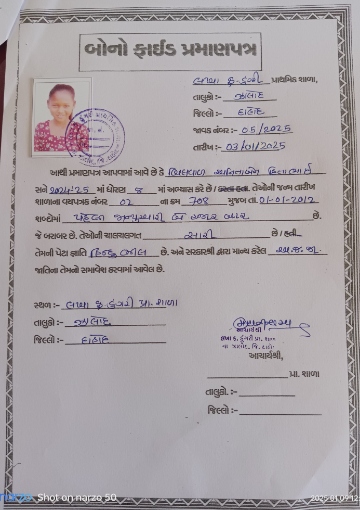 બોનો ફાઈડ પ્રમાણપત્ર
પ્રાથમિક શાળા,
તાલુકો :- ઝાલોદ
જિલ્લો :- દાહોદ
જાવક નંબર :- 05/2025
તારીખ :- 03/01/2025
આથી પ્રમાણપત્ર આપવામાં આવે છે કે
સને 2024-25 માં ધોરણ માં અભ્યાસ કરે છે / કરતા હતા. તેઓની જન્મ તારીખ
શાળાના વયપત્રક નંબર 02 ના ક્રમ 708 મુજબ તા. 01-01-2012
શબ્દોમાં પહેલી જાન્યુઆરી બે હજાર બાર છે.
જે બરાબર છે. તેઓની ચાલચલગત સારી છે / હતી
તેમની પેટા જ્ઞાતિ હિન્દુ ભીલ છે. અને સરકારશ્રી દ્વારા માન્ય કરેલ અ.જ.જા.
જાતિના તેમનો સમાવેશ કરવામાં આવેલ છે.
સ્થળ :- પ્રા. શાળા
તાલુકો :- ઝાલોદ
જિલ્લો :- દાહોદ
આચાર્યશ્રી,
પ્રા. શાળા
તાલુકો. :-
જિલ્લો :-
narzo Shot on narzo 50